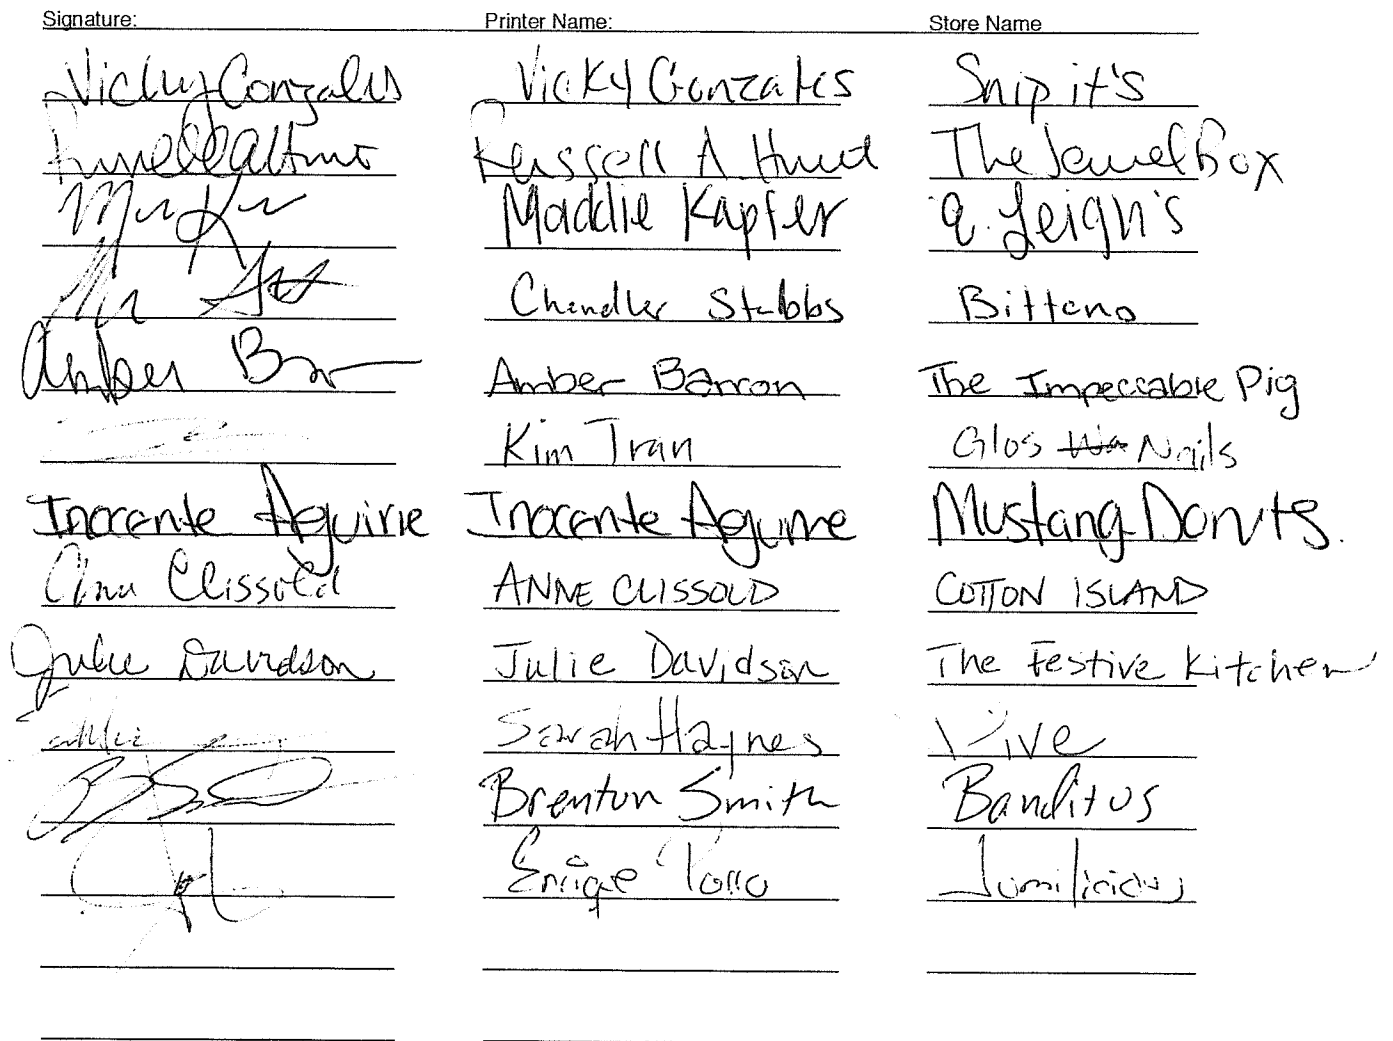 Signature: Printer Name: Store Name
Vicky Gonzales Vicky Gonzales Snip it's
Russell A Hunt The Jewel Box
Maddie Kapfer q. Leigh's
Chandler Stubbs
Amber Bar Amber Barron The Impeccable Pig
Kim Tran Glos Nails
Inocente Aguirre Inocente Aguirre Mustang Donuts.
Anne Clissold ANNE CLISSOLD COTTON ISLAND
Julie Davidson Julie Davidson The Festive Kitchen
Sarah Haynes
Brenton Smith Banditos
Enrique